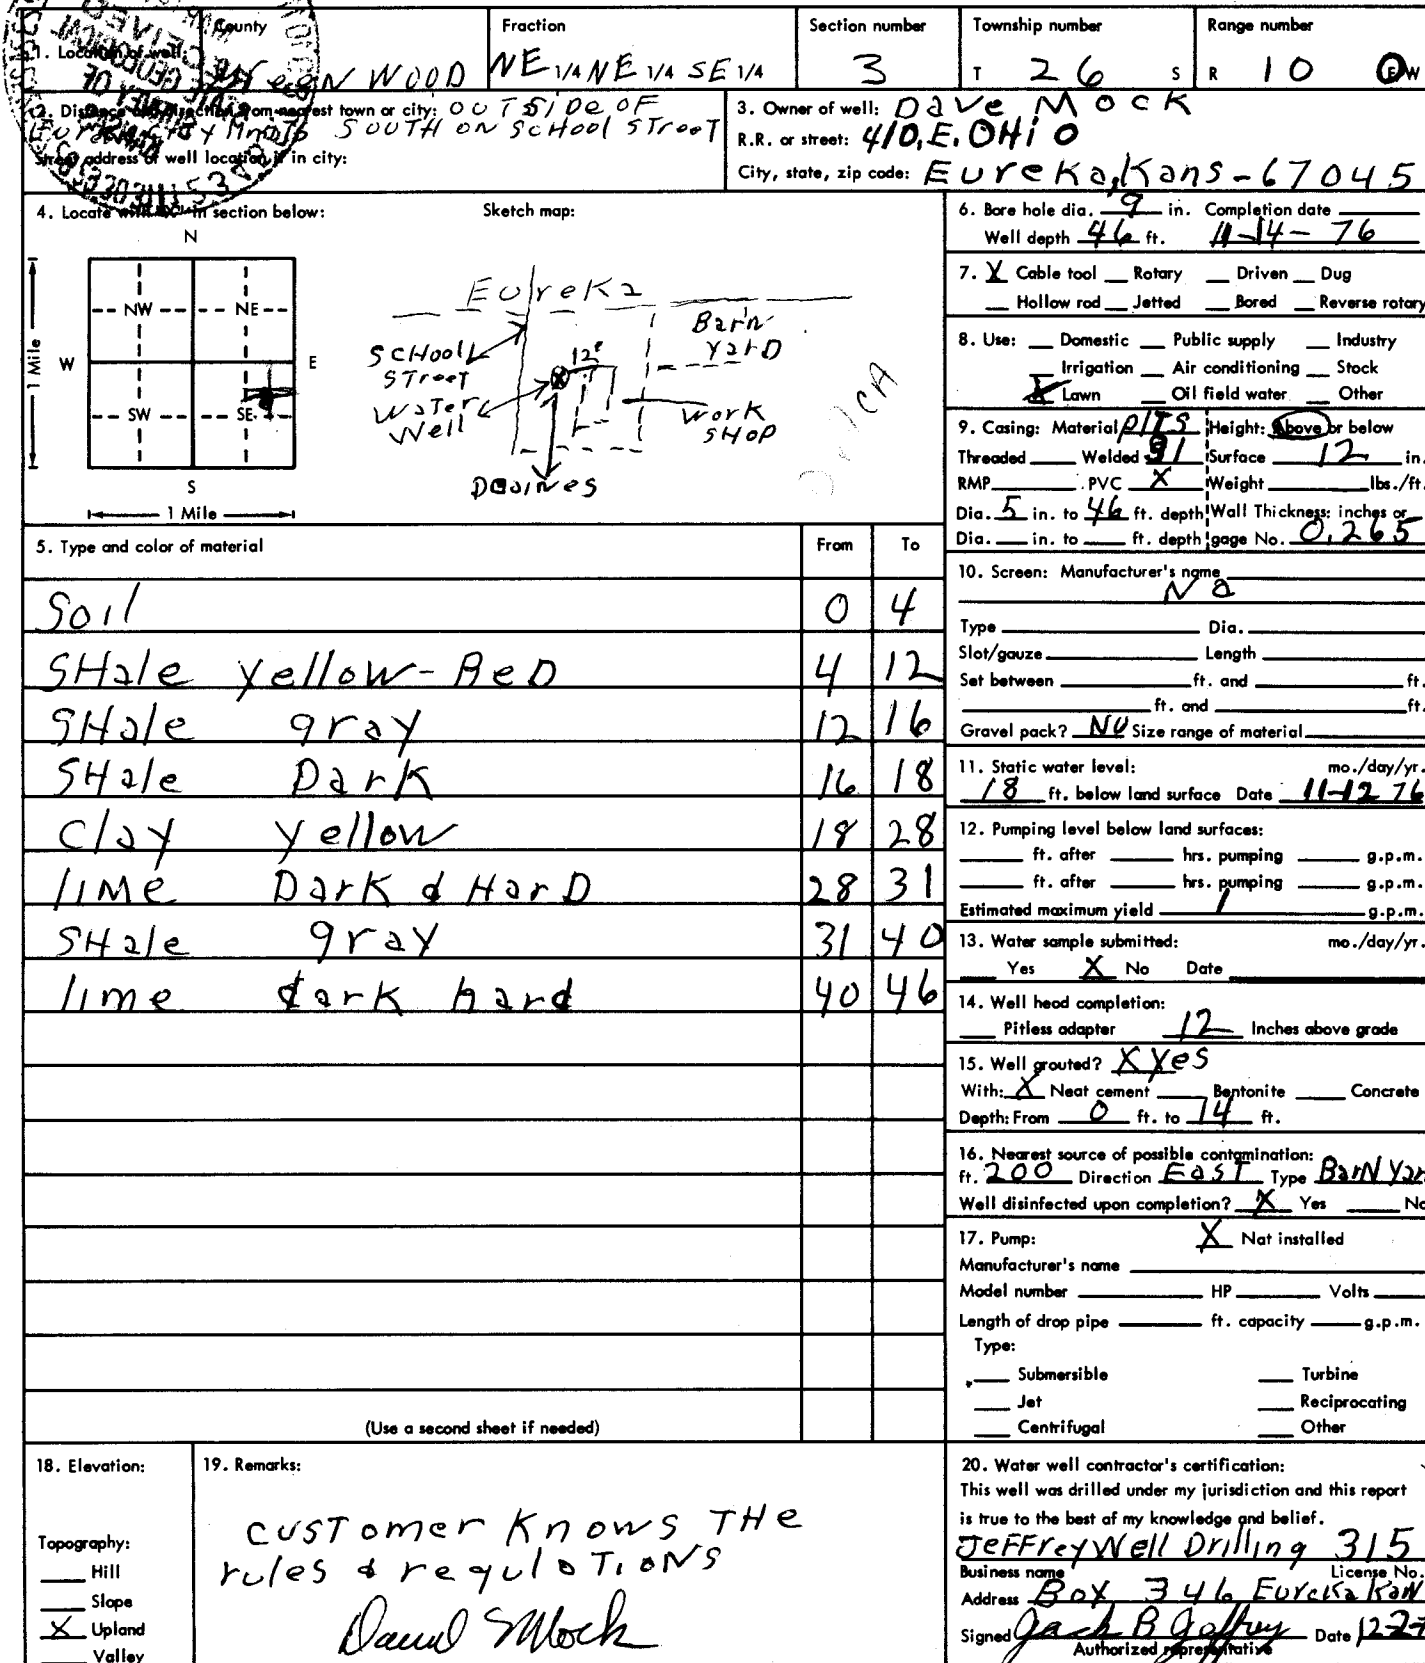 County
Fraction
Section number
Township number
Range number
1. Location of well:
GreenWOOD
NE 1/4 NE 1/4 SE 1/4
3
T 26 S
R 10 E W
2. Distance and direction from nearest town or city: OUTSiDe OF
Eureka City SOUTH ON SCHOOl STreeT
Street address of well location if in city:
3. Owner of well: Dave Mock
R.R. or street: 410. E. OHiO
City, state, zip code: Eureka, Kans - 67045
4. Locate with "X" in section below:
Sketch map:
N
NW NE
W E
SW SE
S
1 Mile
1 Mile
Eureka
Barn
YarD
SCHOOl
STreet
12'
WaTer
Well
Work
SHOP
6. Bore hole dia. 9 in. Completion date
Well depth 46 ft. 11-14-76
7. X Cable tool Rotary Driven Dug
Hollow rod Jetted Bored Reverse rotary
8. Use: Domestic Public supply Industry
Irrigation Air conditioning Stock
X Lawn Oil field water Other
9. Casing: Material Height: Above or below
Threaded Welded Surface 12 in.
RMP PVC X Weight lbs./ft.
Dia. 5 in. to 46 ft. depth Wall Thickness: inches or
Dia. in. to ft. depth gage No. 0.265
5. Type and color of material From To
Soil 0 4
SHale yellow-ReD 4 12
SHale gray 12 16
SHale Dark 16 18
Clay yellow 18 28
lIMe Dark & HarD 28 31
SHale gray 31 40
lime dark hard 40 46
(Use a second sheet if needed)
10. Screen: Manufacturer's name
Na
Type Dia.
Slot/gauze Length
Set between ft. and ft.
ft. and ft.
Gravel pack? NO Size range of material
11. Static water level: mo./day/yr.
18 ft. below land surface Date 11-12 76
12. Pumping level below land surfaces:
ft. after hrs. pumping g.p.m.
ft. after hrs. pumping g.p.m.
Estimated maximum yield 1 g.p.m.
13. Water sample submitted: mo./day/yr.
Yes X No Date
14. Well head completion:
Pitless adapter 12 Inches above grade
15. Well grouted? X yes
With: X Neat cement Bentonite Concrete
Depth: From 0 ft. to 14 ft.
16. Nearest source of possible contamination:
ft. 200 Direction EaST Type BarN Yar
Well disinfected upon completion? X Yes No
17. Pump: X Not installed
Manufacturer's name
Model number HP Volts
Length of drop pipe ft. capacity g.p.m.
Type:
Submersible Turbine
Jet Reciprocating
Centrifugal Other
18. Elevation:
Topography:
Hill
Slope
X Upland
Valley
19. Remarks:
CUSTomer Knows THe
rules & regulaTIONS
David S Mock
20. Water well contractor's certification:
This well was drilled under my jurisdiction and this report
is true to the best of my knowledge and belief.
JeFFrey Well Drilling 315
Business name License No.
Address Box 346 Eureka Kan
Signed Jack B Jeffrey Date 12-2-7
Authorized representative